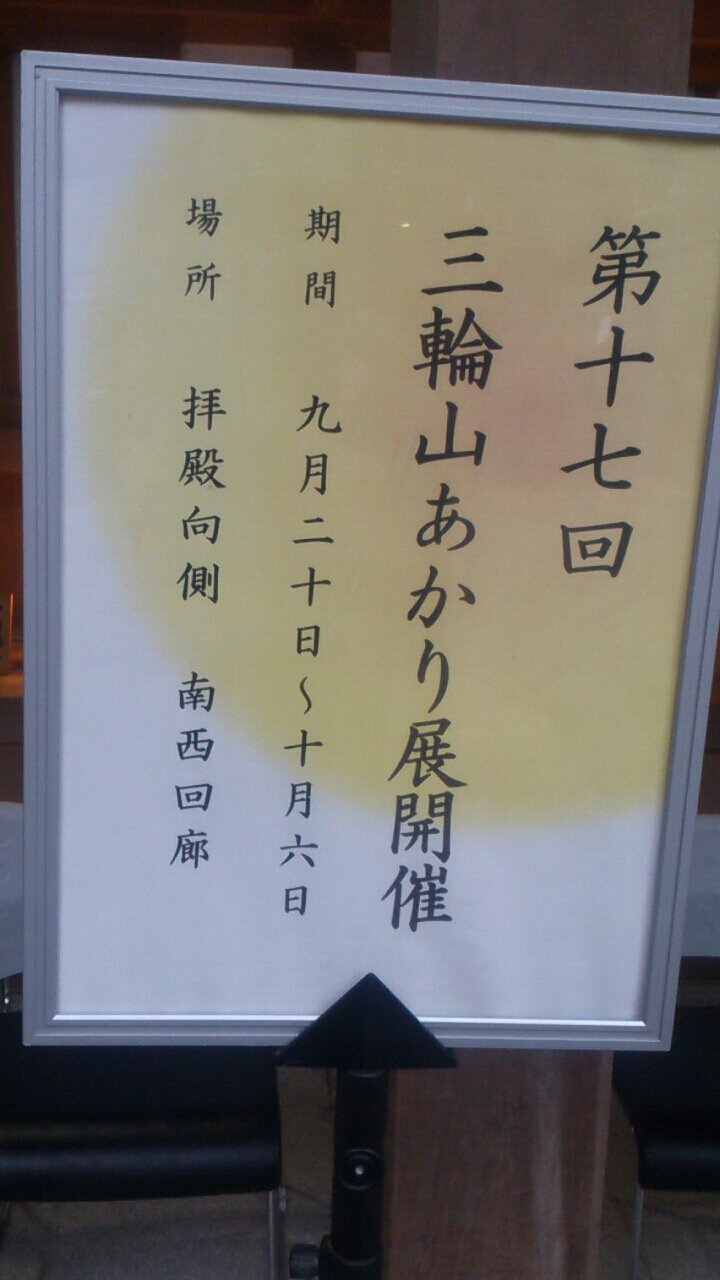 第十七回
三輪山あかり展開催
期間 九月二十日～十月六日
場所 拝殿向側 南西回廊